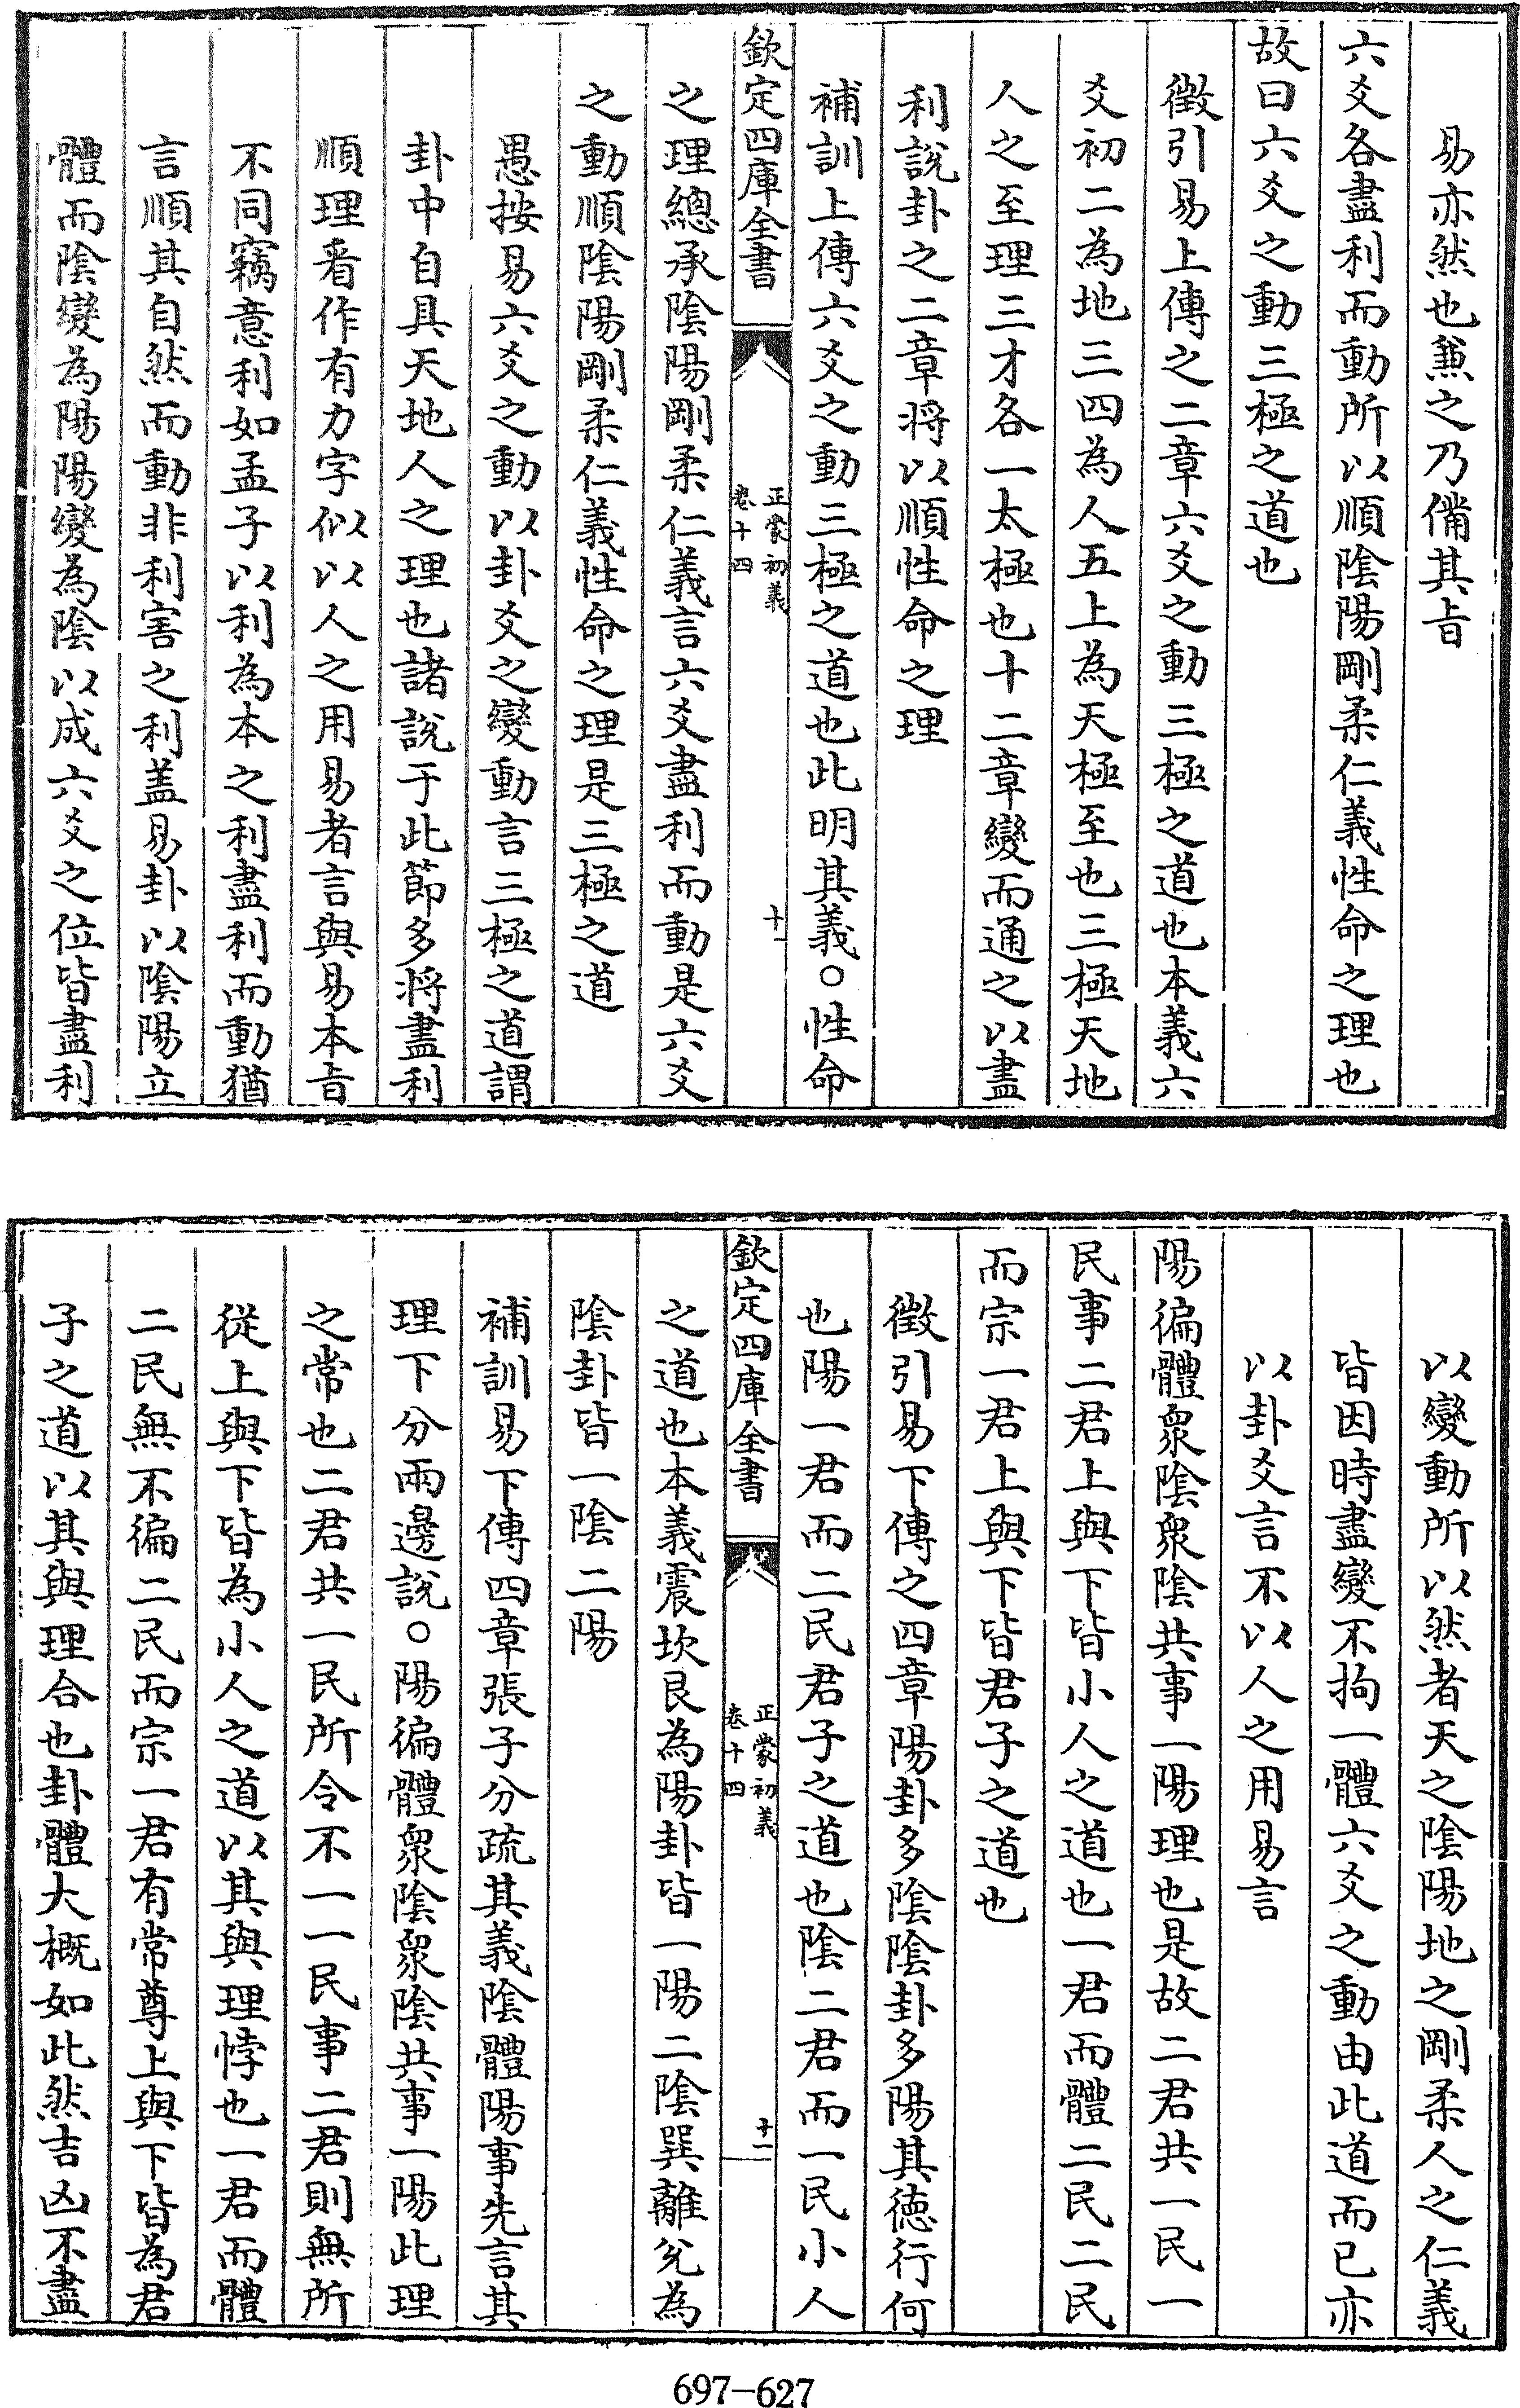 易亦然也蕉之乃備其㫖
六爻各盡利而動所以順陰陽剛柔仁義性命之理也
故曰六爻之動三極之道也
徵引易上傳之二章六爻之動三極之道也本義六
爻初二為地三四為人五上為天極至也三極天地
人之至理三才各一太極也十二章變而通之以盡
利說卦之二章將以順性命之理
補訓上傳六爻之動三極之道也此明其義○性命
欽定四庫全書
正蒙初義
卷十四
十一
之理總承陰陽剛柔仁義言六爻盡利而動是六爻
之動順陰陽剛柔仁義性命之理是三極之道
愚按易六爻之動以卦爻之變動言三極之道謂
卦中自具天地人之理也諸說于此節多將盡利
順理看作有力字似以人之用易者言與易本㫖
不同竊意利如孟子以利為本之利盡利而動猶
言順其自然而動非利害之利盖易卦以陰陽立
體而陰變為陽陽變為陰以成六爻之位皆盡利
以變動所以然者天之陰陽地之剛柔人之仁義
皆因時盡變不拘一體六爻之動由此道而已亦
以卦爻言不以人之用易言
陽徧體衆陰衆陰共事一陽理也是故二君共一民一
民事二君上與下皆小人之道也一君而體二民二民
而宗一君上與下皆君子之道也
徵引易下傳之四章陽卦多陰陰卦多陽其德行何
也陽一君而二民君子之道也陰二君而一民小人
欽定四庫全書
正蒙初義
卷十四
十一
之道也本義震坎艮為陽卦皆一陽二陰巽離兌為
陰卦皆一陰二陽
補訓易下傳四章張子分疏其義陰體陽事先言其
理下分兩邊說○陽徧體衆陰衆陰共事一陽此理
之常也二君共一民所令不一一民事二君則無所
從上與下皆為小人之道以其與理悖也一君而體
二民無不徧二民而宗一君有常尊上與下皆為君
子之道以其與理合也卦體大概如此然吉凶不盡
697-627